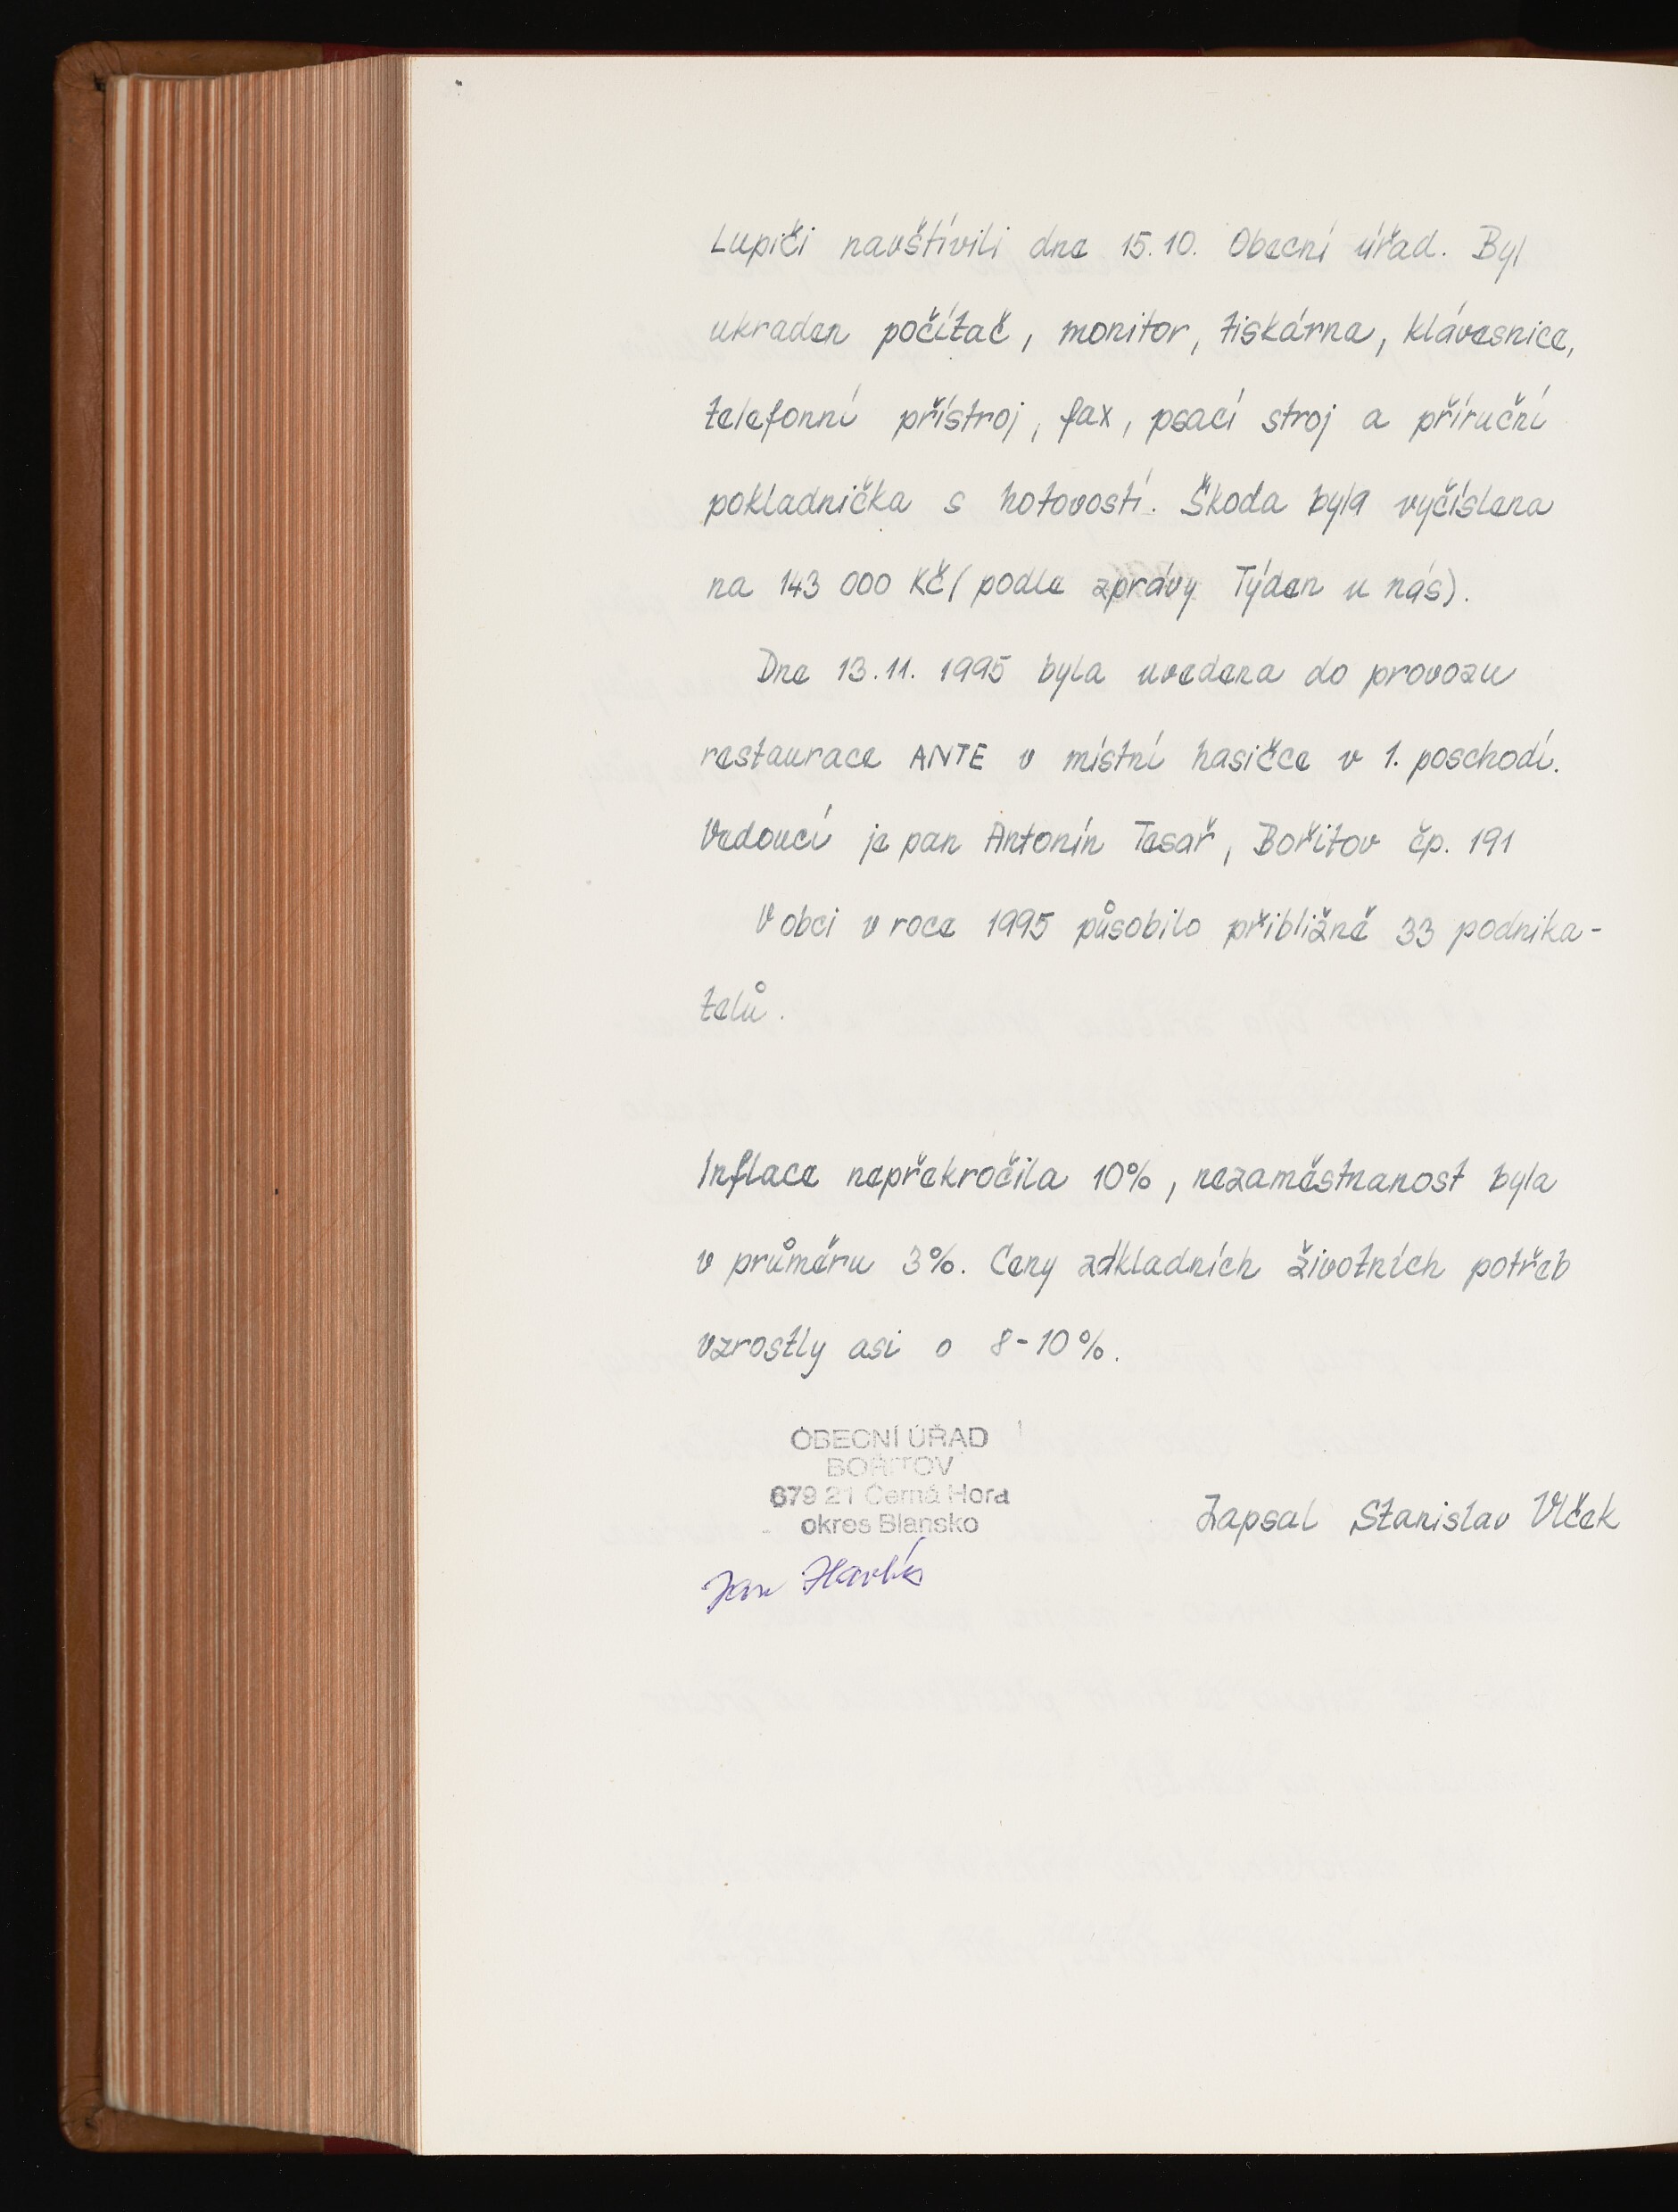 Lupiči navštívili dne 15.10. Obecní úřad. Byl
ukraden počítač, monitor, tiskárna, klávesnice,
telefonní přístroj, fax, psací stroj a příruční
pokladnička s hotovostí. Škoda byla vyčíslena
na 143 000 Kč (podle zprávy Týden u nás).
Dne 13.11. 1995 byla uvedena do provozu
restaurace ANTE v místní hasičce v 1. poschodí.
Vedoucí je pan Antonín Tesař, Bořitov čp. 191
V obci v roce 1995 působilo přibližně 33 podnika-
telů.
Inflace nepřekročila 10%, nezaměstnanost byla
v průměru 3%. Ceny základních životních potřeb
vzrostly asi o 8-10%.
OBECNÍ ÚŘAD
BOŘITOV
679 21 Černá Hora
okres Blansko
Zapsal Stanislav Vlček
Jan